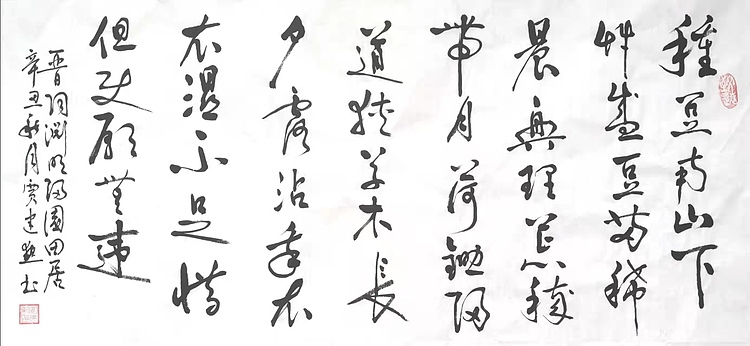 種豆南山下
艸盛豆苗稀
晨興理荒穢
帶月荷鋤歸
道狹草木長
夕露沾我衣
衣濕不足惜
但使願無違
晋陶淵明歸園田居
辛丑秋月賈建书